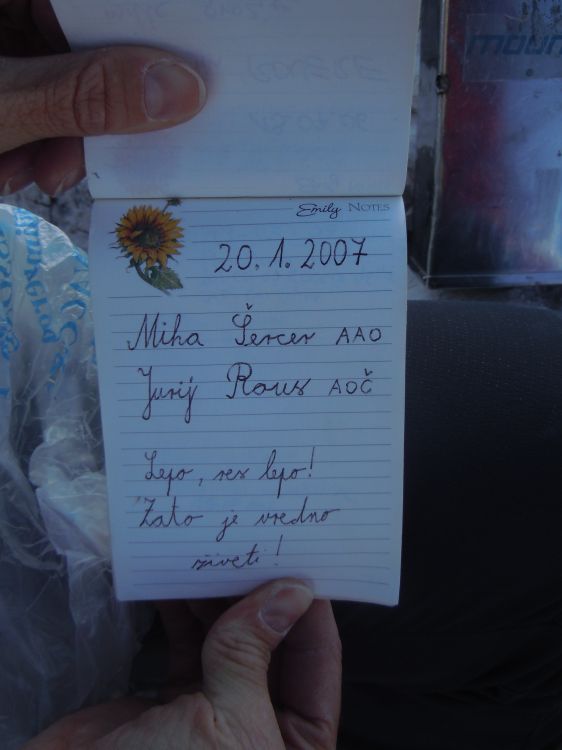 moun
Emily NOTES
20.1.2007
Miha Šercer AAO
Jurij Rous AOČ
Lepo, res lepo!
Zato je vredno
živeti!